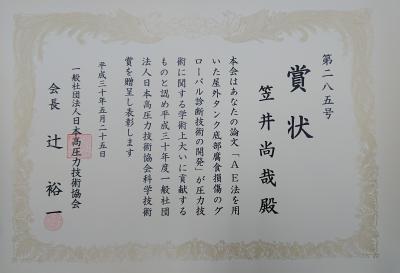 第二八五号
賞状
笠井尚哉殿
本会はあなたの論文「AE法を用
いた屋外タンク底部腐食損傷のグ
ローバル診断技術の開発」が圧力技
術に関する学術上大いに貢献する
ものと認め平成三十年度一般社団
法人日本高圧力技術協会科学技術
賞を贈呈し表彰します
平成三十年五月二十五日
一般社団法人日本高圧力技術協会
会長 辻 裕一